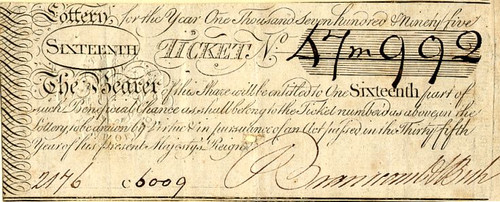 Lottery for the Year One Thousand Seven hundred & Ninety five
SIXTEENTH TICKET No. 47m992
The Bearer of this Share will be entitled to One Sixteenth part of
such Beneficial Chance as shall belong to the Ticket numberd as above, in the
Lottery, to be drawn by Virtue & in pursuance of an Act passed in the Thirty fifth
Year of his Present Majesty's Reign
2176 c6009